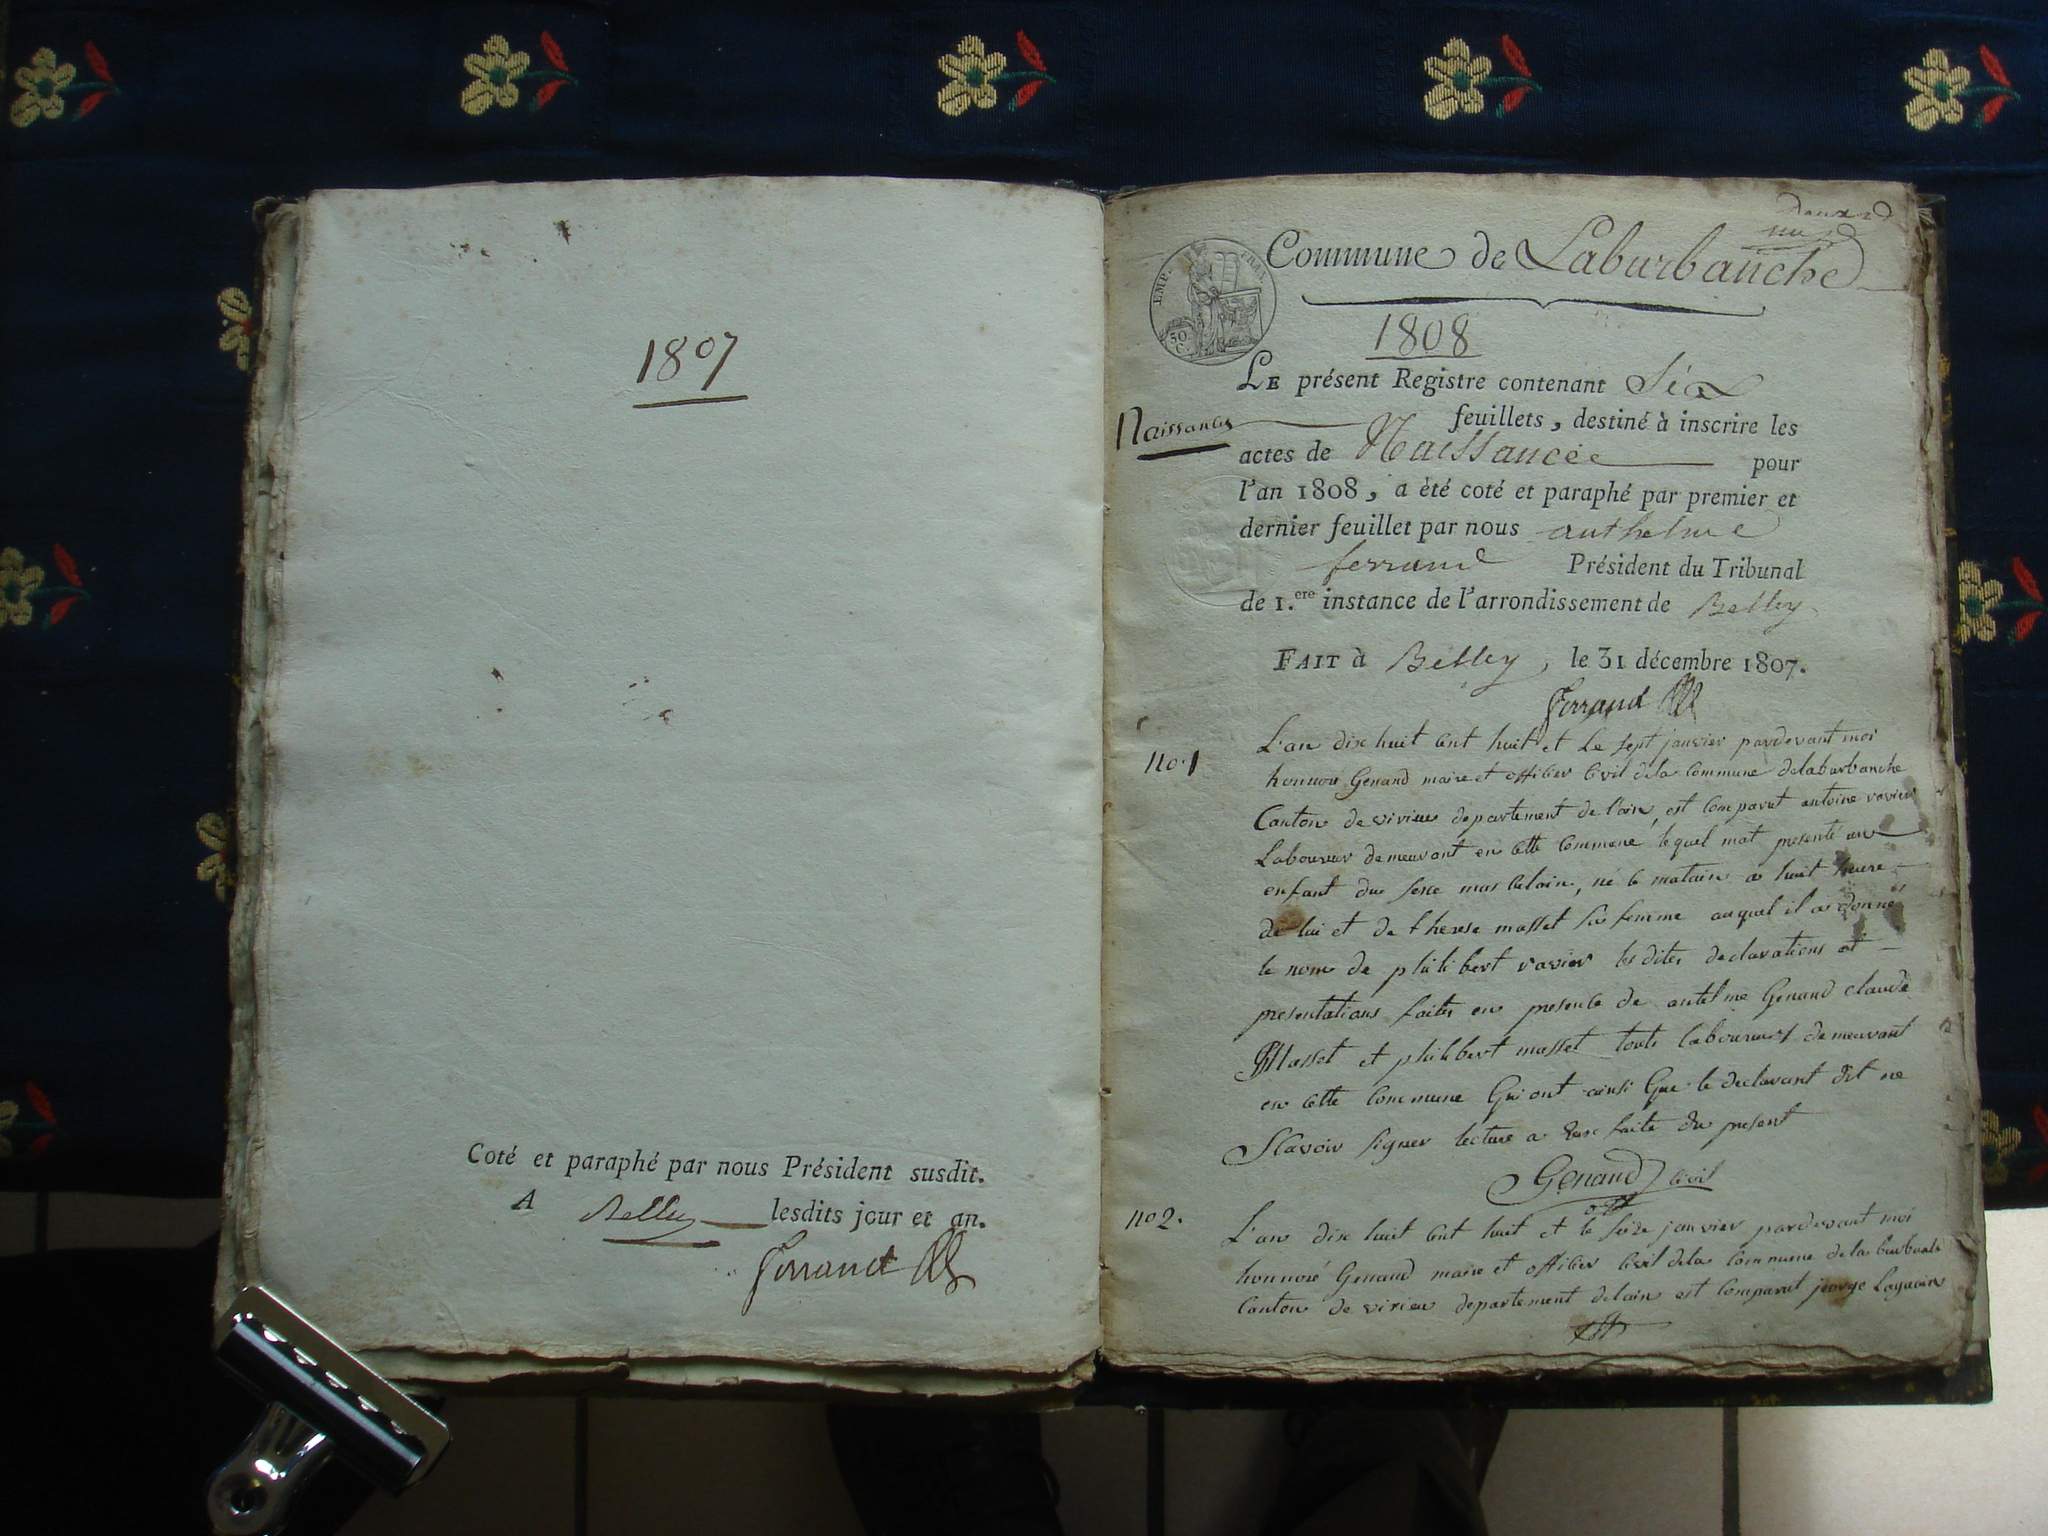 1807
Coté et paraphé par nous Président susdit.
A Belley lesdits jour et an.
Ferrand
Commune de Laburbanche
EMP. FRAN.
50 C.
1808
LE présent Registre contenant Six
Naissances
feuillets, destiné à inscrire les
actes de Naissance pour
l'an 1808, a été coté et paraphé par premier et
dernier feuillet par nous anthelme
ferrand Président du Tribunal
de 1.ere instance de l'arrondissement de Belley
FAIT à Belley, le 31 décembre 1807.
Ferrand
no. 1
L'an dix huit cent huit et le sept janvier pardevant moi
honnoré Genand maire et officier civil de la commune delaburbanche
Canton de virieu departement de l'ain, est comparut antoine ravier
Laboureur demeurant en cette commune lequel mat presenté un
enfant du sexe masculain, né ce matain a huit heure
de lui et de therese masset sa femme auquel il a donné
le nom de philibert ravier les dites declarations et
presentations faites en presence de antelme Genand claude
Masset et philibert masset touts laboureurs demeurant
en cette commune Qui ont ainsi Que le declarant dit ne
Scavoir signer lecture a eux faite du present
Genand civil
off
no 2.
L'an dix huit cent huit et le seize janvier pardevant moi
honnoré Genand maire et officier civil dela commune de la
Canton de virieu departement delain est comparut jeorge